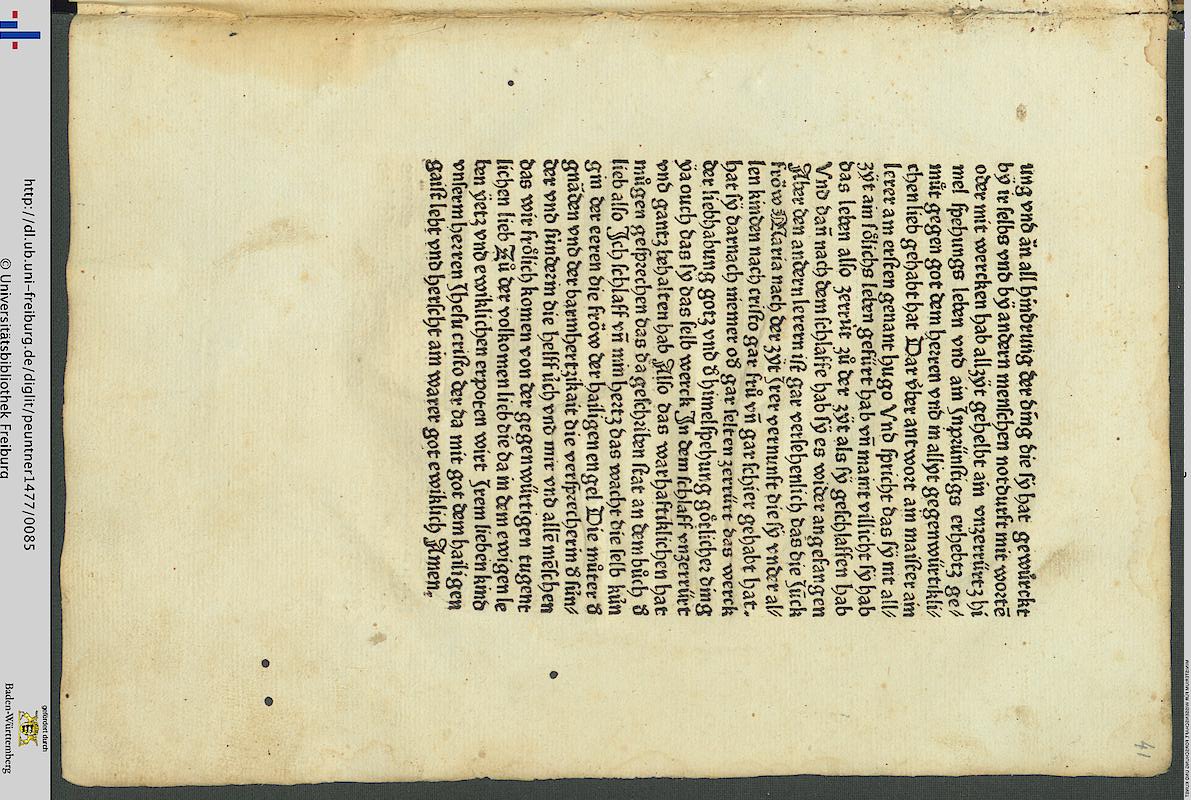 ung vnd ăn all hindrung der ding die sy hat gewürckt
bÿ ir selbs vnd bÿ andern menschen notdurft mit wortē
oder mit wercken hab all zÿt gehelbt ain vnzerrürtz hi
mel spehungs leben vnd ain Inprünstigs erhebtz ge/
můt gegen got dem herren vnd in allzÿt gegenwürtikli/
chen lieb gehabt hat Dar v̊ber antwort am maister ain
lerer am ersten genant hugo Vnd spricht das sÿ mt all/
zÿt am sőlichs leben gefürt hab vn̄ maint villicht sÿ hab
das leben also zerrüt zů der zÿt als sÿ geschlaffen hab
Vnd dan̄ nach dem schlaffe hab sÿ es wider angefangen
Aber den andern lerern ist gar versehenlich das die Iück
fröw Maria nach der zÿt Irer vernunft die sÿ vnder al/
len kinden nach cristo gar frů vn̄ gar schier gehabt hat.
hat sÿ darnach niemer od̕ gar selten zerrürt das werck
der liebhabung gotz vnd d̕ himelspehung götlicher ding
ya ouch das sÿ das selb werck In dem schlaff vnzerrürt
vnd gantz behalten hab Also das warhaftiklichen hat
mügen gesprechen das da geschriben stat an dem bůch d̕
lieb also Ich schlaff vn̄ min hertz das wacht die selb kün
gin der eeren die fröw der hailigen engel Die můter d̕
gnăden vnd der barmhertzikait die versprecherin d̕ sün/
der vnd sunderin die helff üch vnd mir vnd alle mēschen
das wir frőlich komen von der gegenwürtigen tugent
lichen lieb Zů der volkomen lieb die da in dem ewigen le
ben ÿetz vnd ewiklichen erpoten wirt Irem lieben kind
vnserm herren Jhesu cristo der da mit got dem hailigen
gaist lebt vnd herscht ain warer got ewiklich Amen.
41
http://dl.ub.uni-freiburg.de/diglit/peuntner1477/0085
© Universitätsbibliothek Freiburg
gefördert durch
Baden-Württemberg